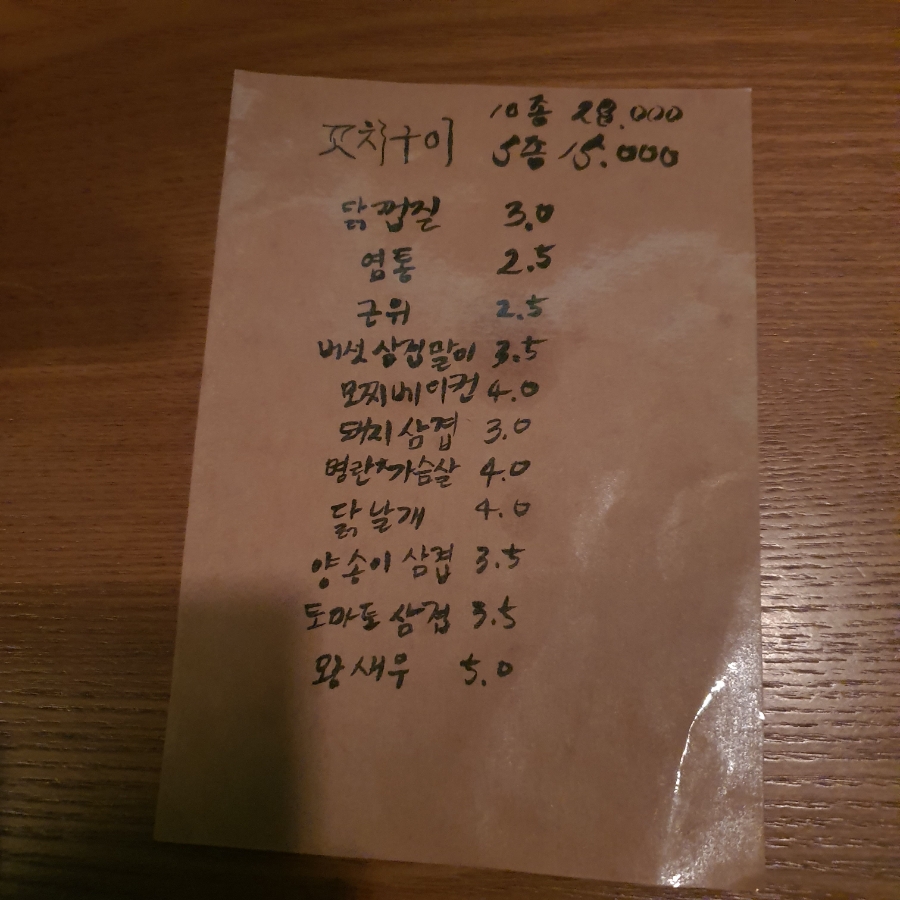 10종 28.000
꼬치구이 5종 15.000
닭껍질 3.0
염통 2.5
근위 2.5
버섯삼겹말이 3.5
모찌베이컨 4.0
돼지삼겹 3.0
명란+가슴살 4.0
닭날개 4.0
양송이 삼겹 3.5
토마토 삼겹 3.5
왕새우 5.0